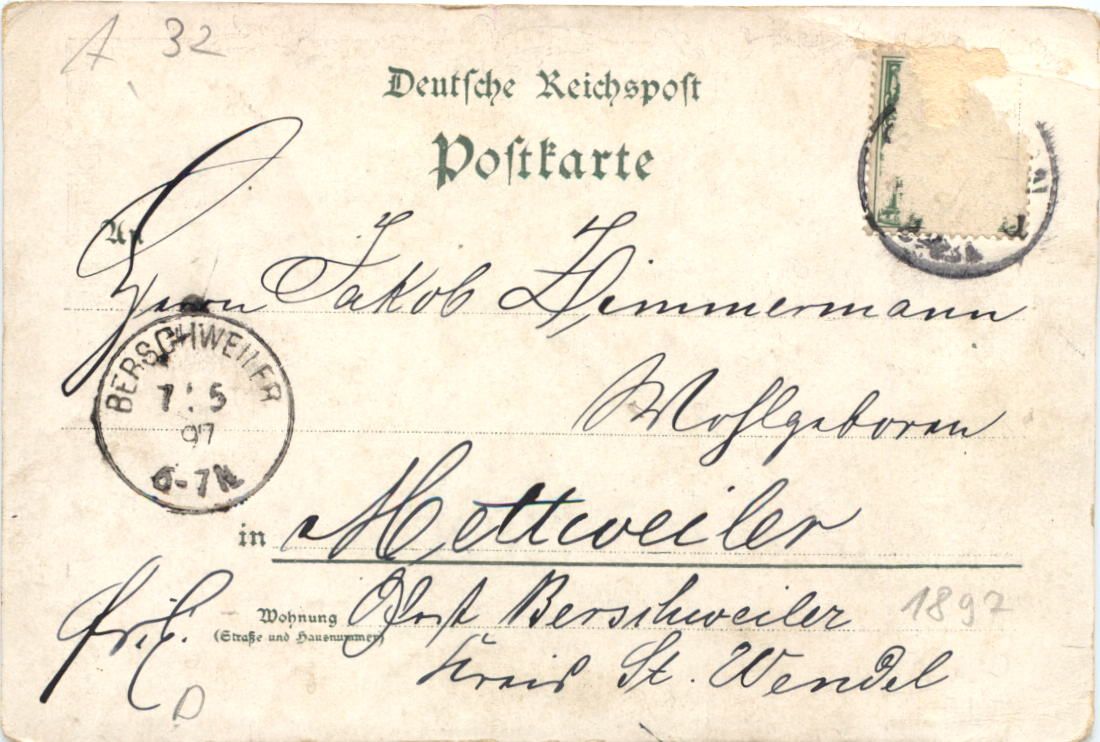 A 32
Deutsche Reichspost
Postkarte
An
Herrn Jakob Zimmermann
Wohlgeboren
BERSCHWEILER
7 5
97
6-7N
in Mettweiler
Wohnung
(Straße und Hausnummer)
Post Berschweiler
Kreis St. Wendel
1897
D